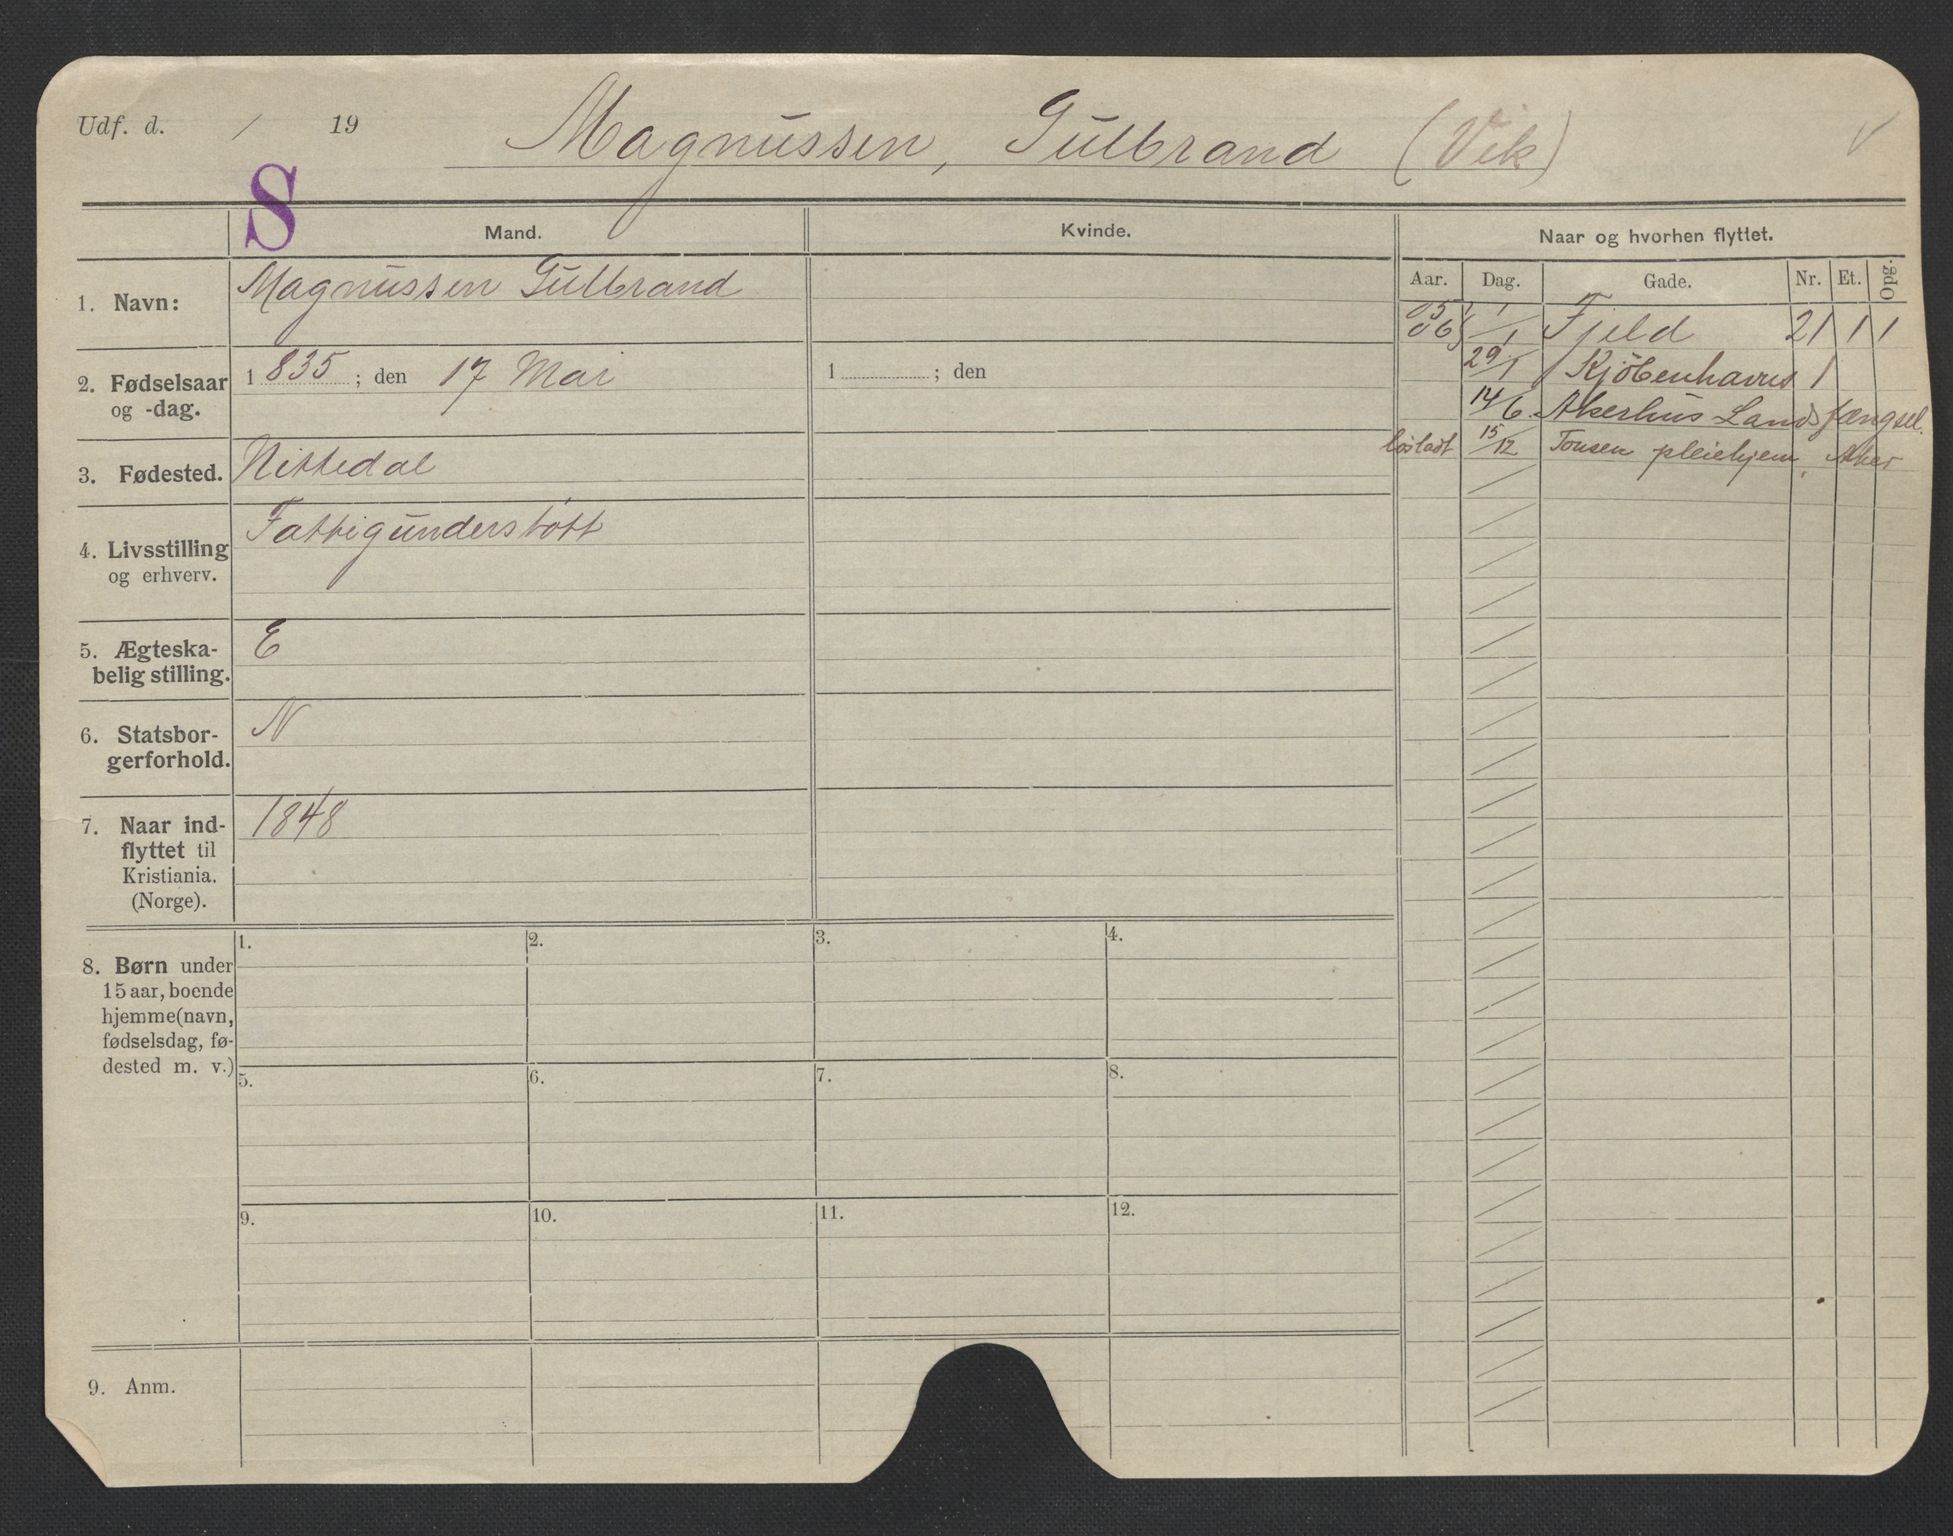 Udf. d. / 19
Magnussen, Gulbrand (Vik)
S
Mand.
Kvinde.
Naar og hvorhen flyttet.
Aar. Dag. Gade. Nr. Et. Opg.
1. Navn:
Magnussen Gulbrand
2. Fødselsaar
og -dag.
1835; den 17 Mai
1 ; den
3. Fødested.
Nittedal
4. Livsstilling
og erhverv.
Fattigunderstött
5. Ægteska-
belig stilling.
E
6. Statsbor-
gerforhold.
N
7. Naar ind-
flyttet til
Kristiania.
(Norge).
1848
05 1/1
06 /1 Fjeld 21 1 1
29/1 Kjöbenhavns 1
14/6 Akerhus Landsfængsel.
lösladt 15/12 Tonsen pleiehjem, Aker
8. Børn under
15 aar, boende
hjemme (navn,
fødselsdag, fø-
dested m. v.)
1. 2. 3. 4.
5. 6. 7. 8.
9. 10. 11. 12.
9. Anm.